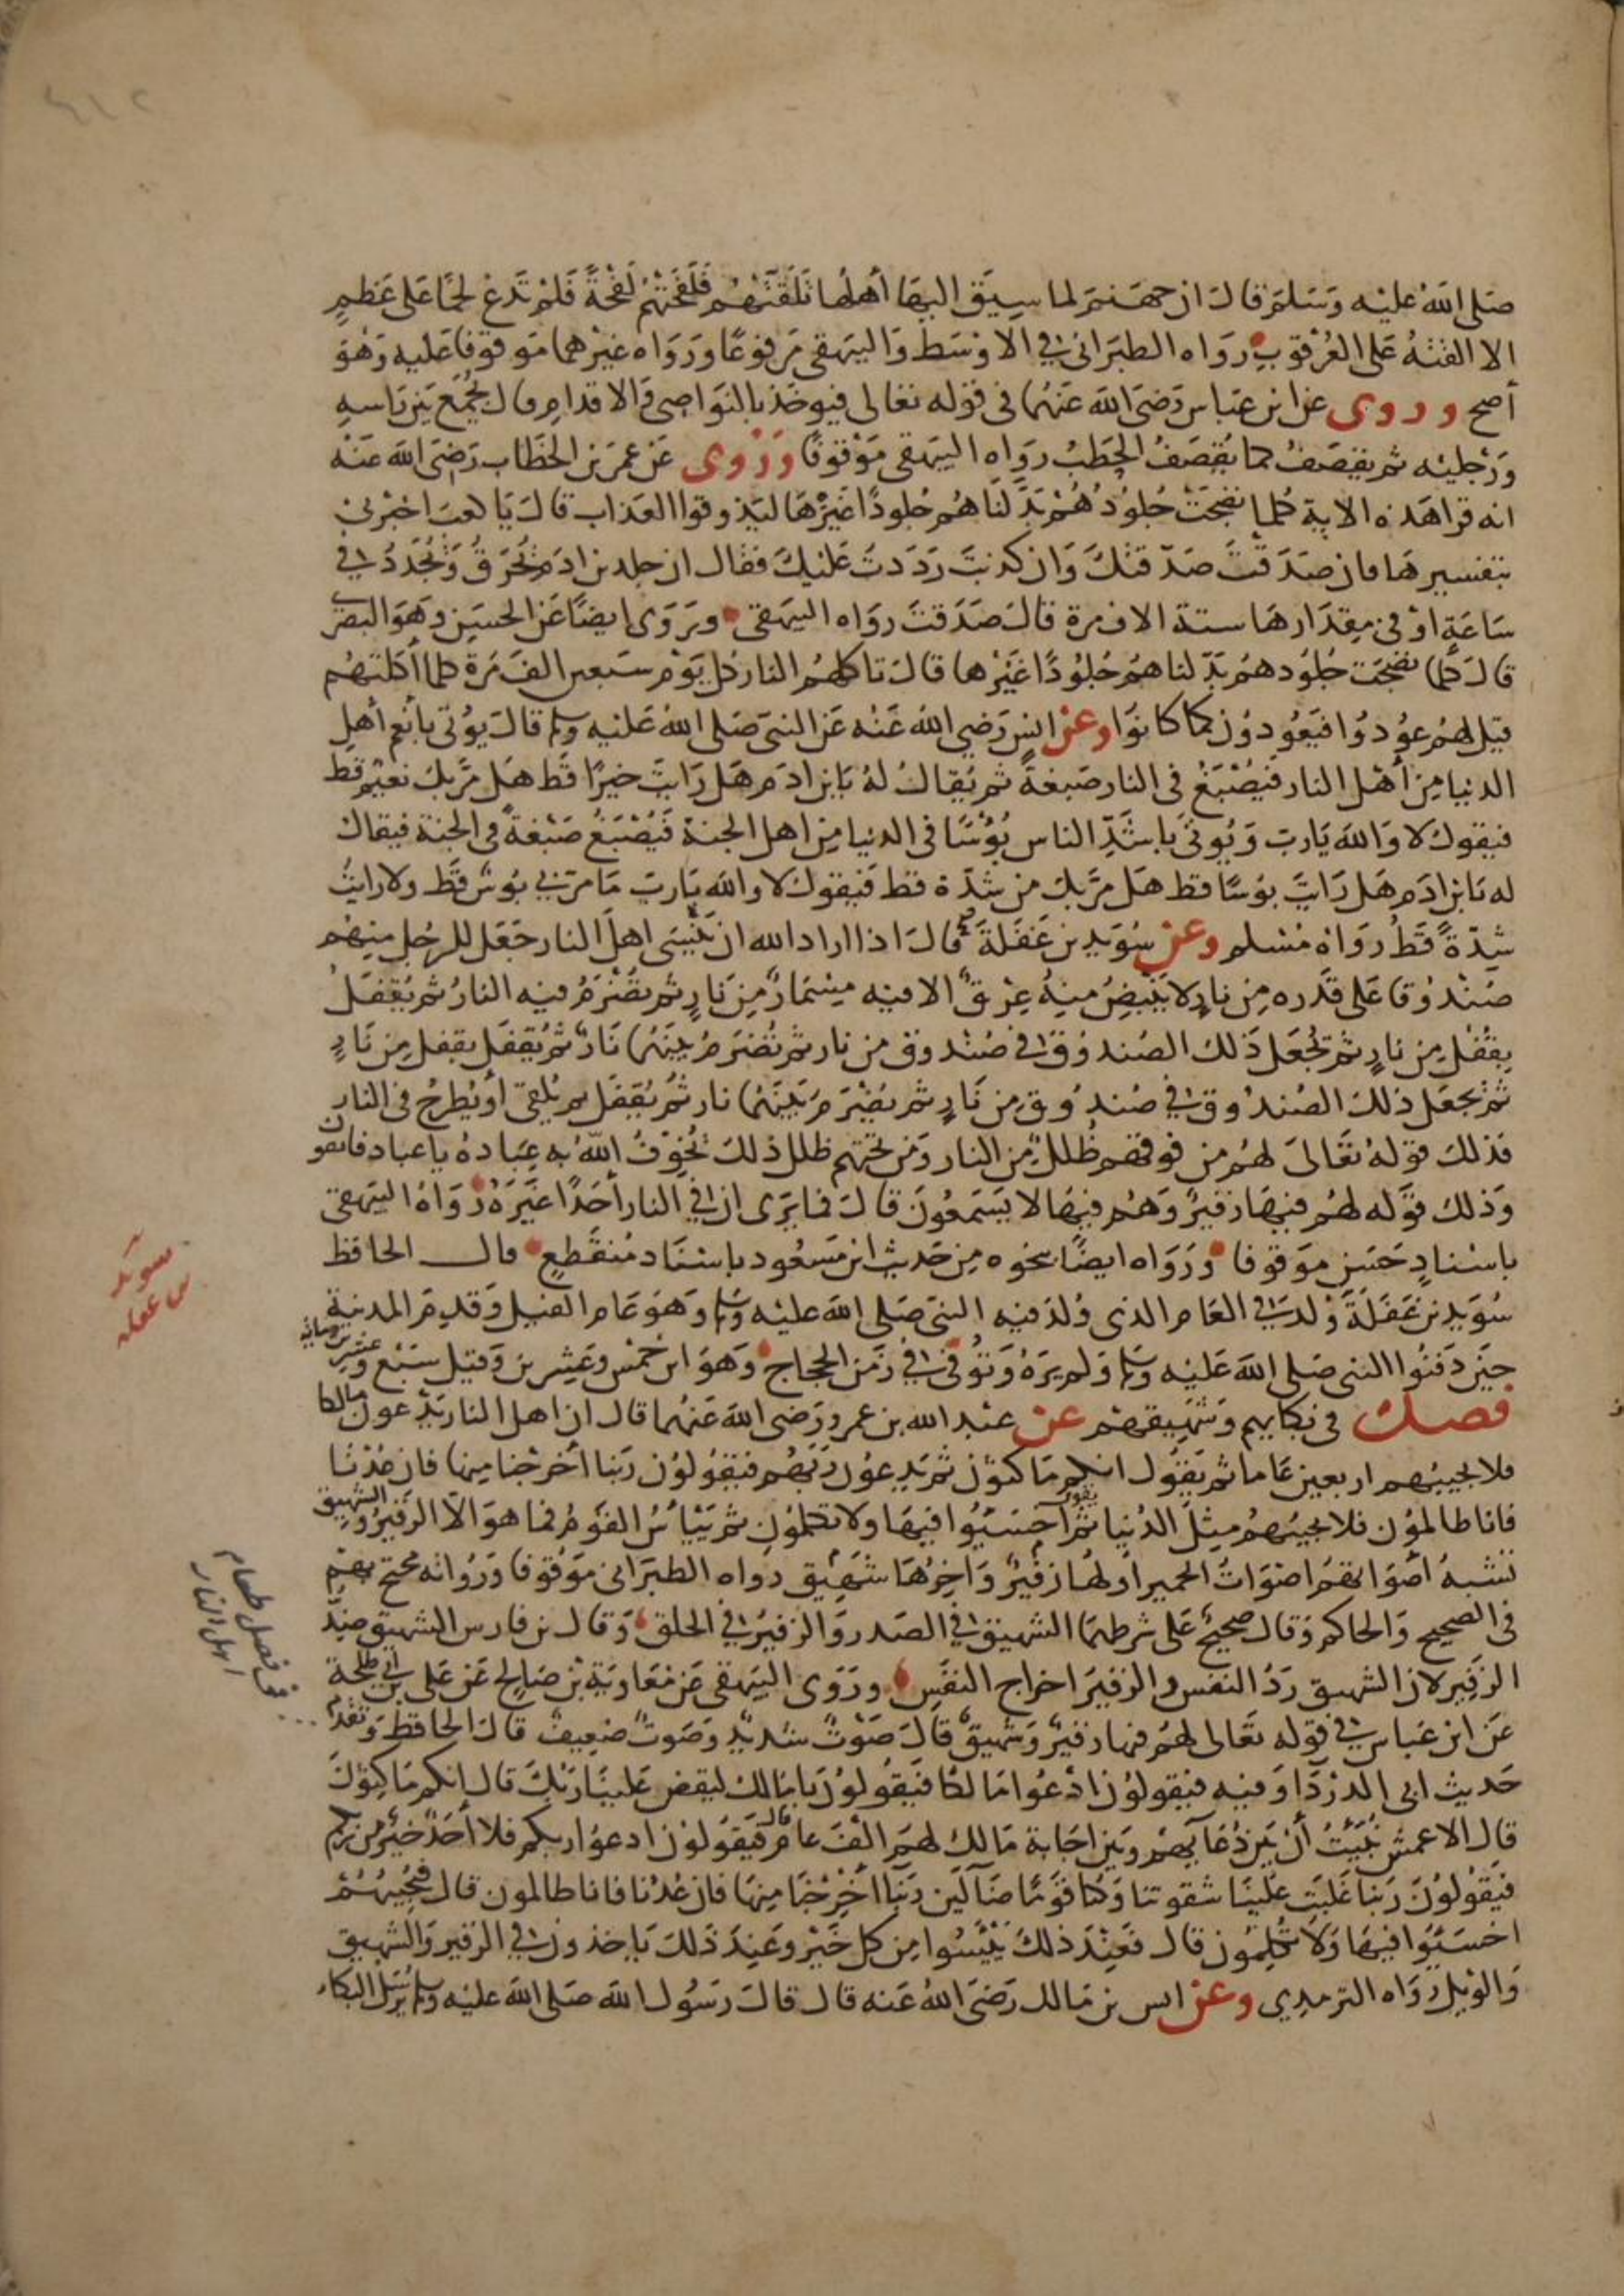 ٤١٢
صلى الله عليه وسلم قال ان جهنم لما سيق اليها أهلها تلقتهم فلفحتهم لفحة فلم تدع لحما على عظم
الا القته على العرقوب رواه الطبراني في الاوسط والبيهقي مرفوعا ورواه غيرهما موقوفا عليه وهو
أصح وروى عن ابن عباس رضى الله عنهما في قوله تعالى فيوخذ بالنواصى والاقدام قال يجمع بين راسه
ورجليه ثم يقصف كما يقصف الحطب رواه البيهقي موقوفا وروى عن عمر بن الخطاب رضى الله عنه
انه قرا هذه الاية كلما نضجت جلودهم بدلناهم جلودا غيرها ليذوقوا العذاب قال يا كعب اخبرني
بتفسيرها فان صدقت صدقتك وان كذبت رددت عليك فقال ان جلد بن ادم يحرق ويجدد في
ساعة او في مقدارها ستة الاف مرة قال صدقت رواه البيهقي ويروى ايضا عن الحسن وهو البصري
قال كلما نضجت جلودهم بدلناهم جلودا غيرها قال تاكلهم النار كل يوم سبعين الف مرة كلما أكلتهم
قيل لهم عودوا فيعودون كما كانوا وعن انس رضي الله عنه عن النبى صلى الله عليه وسلم قال يؤتى بأنعم أهل
الدنيا من أهل النار فيصبغ في النار صبغة ثم يقال له يا بن ادم هل رايت خيرا قط هل مر بك نعيم قط
فيقول لا والله يارب ويوتى باشد الناس بؤسا في الدنيا من اهل الجنة فيصبغ صبغة في الجنة فيقال
له يا بن ادم هل رايت بوسا قط هل مر بك من شدة قط فيقول لا والله يارب ما مر بي بوس قط ولا رايت
شدة قط رواه مسلم وعن سويد بن غفلة قال اذا اراد الله ان ينسى اهل النار جعل للرجل منهم
صندوقا على قدره من نار لا ينبض منه عرق الا فيه مسمار من نار ثم تضرم فيه النار ثم يقفل
بقفل من نار ثم يجعل ذلك الصندوق في صندوق من نار ثم تضرم بينهما نار ثم يقفل بقفل من نار
ثم يجعل ذلك الصندوق في صندوق من نار ثم يضرم بينهما نار ثم يقفل ثم يلقى أو يطرح في النار
فذلك قوله تعالى لهم من فوقهم ظلل من النار ومن تحتهم ظلل ذلك يخوف الله به عباده يا عباد فاتقون
وذلك قوله لهم فيها زفير وهم فيها لا يسمعون قال فما يرى ان في النار أحدا غيره رواه البيهقي
باسناد حسن موقوفا ورواه ايضا بنحوه من حديث ابن مسعود باسناد منقطع قال الحافظ
سويد بن غفلة ولد في العام الذى ولد فيه النبى صلى الله عليه وسلم وهو عام الفيل وقدم المدينة
حين دفنوا النبى صلى الله عليه وسلم ولم يره وتوفى في زمن الحجاج وهو ابن خمس وعشرين وقيل سبع وعشرين ومائة
فصل في بكايهم وشهيقهم عن عبد الله بن عمرو رضى الله عنهما قال ان اهل النار يدعون مالكا
فلا يجيبهم اربعين عاما ثم يقول انكم ماكثون ثم يدعون ربهم فيقولون ربنا أخرجنا منها فان عدنا
فانا ظالمون فلا يجيبهم مثل الدنيا ثم يقول اخسئوا فيها ولا تكلمون ثم ييأس القوم فما هو الا الزفير والشهيق
تشبه أصواتهم اصوات الحمير اولها زفير واخرها شهيق رواه الطبراني موقوفا ورواته محتج بهم
في الصحيح والحاكم وقال صحيح على شرطهما الشهيق في الصدر والزفير في الحلق وقال بن فارس الشهيق ضد
الزفير لان الشهيق رد النفس والزفير اخراج النفس وروى البيهقي عن معاوية بن صالح عن على بن ابي طلحة
عن ابن عباس في قوله تعالى لهم فيها زفير وشهيق قال صوت شديد وصوت ضعيف قال الحافظ وتقدم
حديث ابى الدرداء وفيه فيقولون ادعوا مالكا فيقولون يا مالك ليقض علينا ربك قال إنكم ماكثون
قال الاعمش نبئت أن بين دعآئهم وبين اجابة مالك لهم الف عام قال فيقولون ادعوا ربكم فلا أحد خير من ربكم
فيقولون ربنا غلبت علينا شقوتنا وكنا قوما ضآلين ربنا أخرجنا منها فان عدنا فانا ظالمون قال فيجيبهم
اخسئوا فيها ولا تكلمون قال فعند ذلك يئسوا من كل خير وعند ذلك ياخذون في الزفير والشهيق
والويل رواه الترمدي وعن انس بن مالك رضى الله عنه قال قال رسول الله صلى الله عليه وسلم يرسل البكاء
سويد
بن غفله
فصل طعام
اهل النار